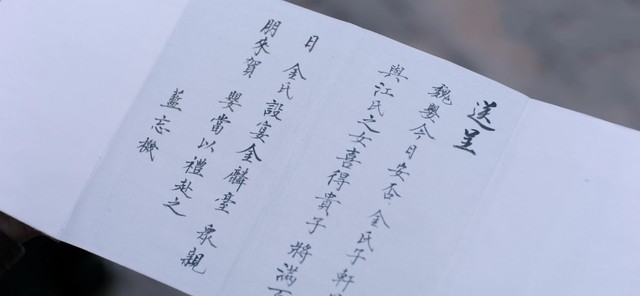 送呈
魏嬰今日安否 金氏子軒
與江氏之女喜得貴子 將滿百
日 金氏設宴金麟臺 眾親
朋來賀 嬰當以禮赴之
藍忘機